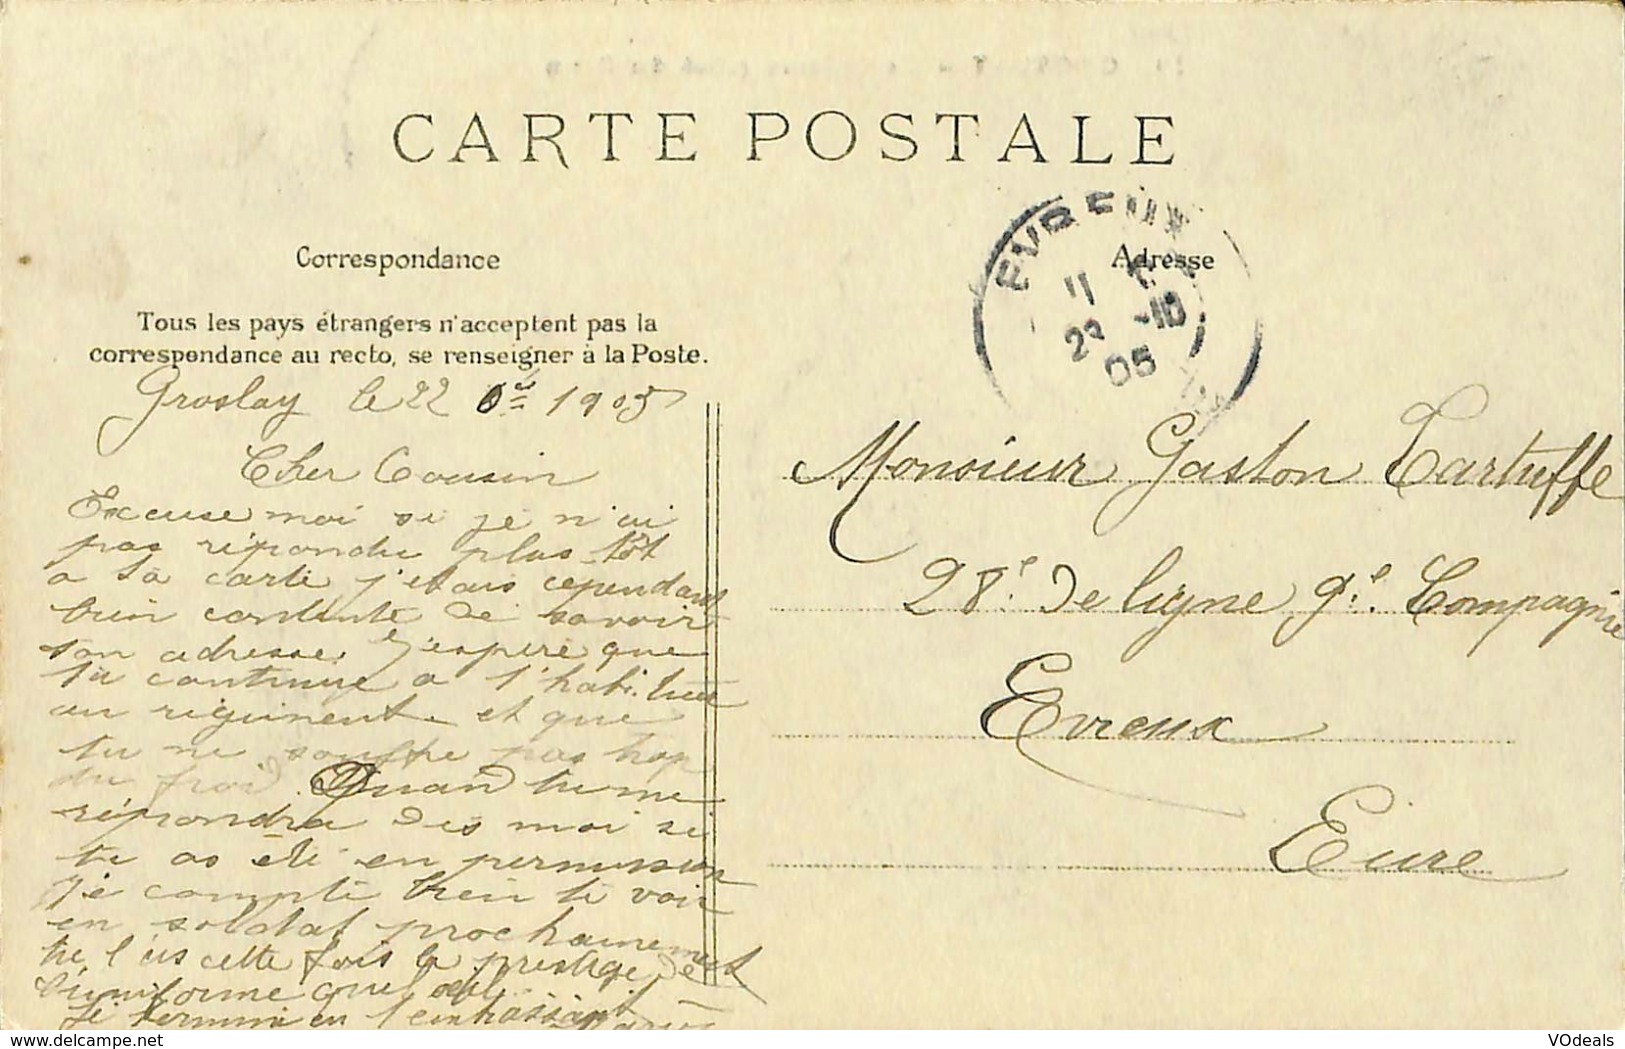 CARTE POSTALE
Correspondance
Adresse
Tous les pays étrangers n'acceptent pas la
correspondance au recto, se renseigner à la Poste.
EVREUX
11
23 -10
05
Groslay le 22 8bre 1905
Cher Cousin
Excuse moi si je n'ai
pas répondu plus tôt
a ta carte j'etais cependant
bien contente de savoir
ton adresse. J'espère que
tu continue a t'habituer
au régiment et que
tu ne souffre pas trop
du froid. Quand tu me
répondra dis moi si
tu as été en permission
je compte bien te voir
en soldat prochainement
tu l'as cette fois le prestige de
l'uniforme quel
Je termine en t'embrassant
Monsieur Gaston Tartuffe
28e de ligne 9e Compagnie
Evreux
Eure
VOdeals
www.delcampe.net